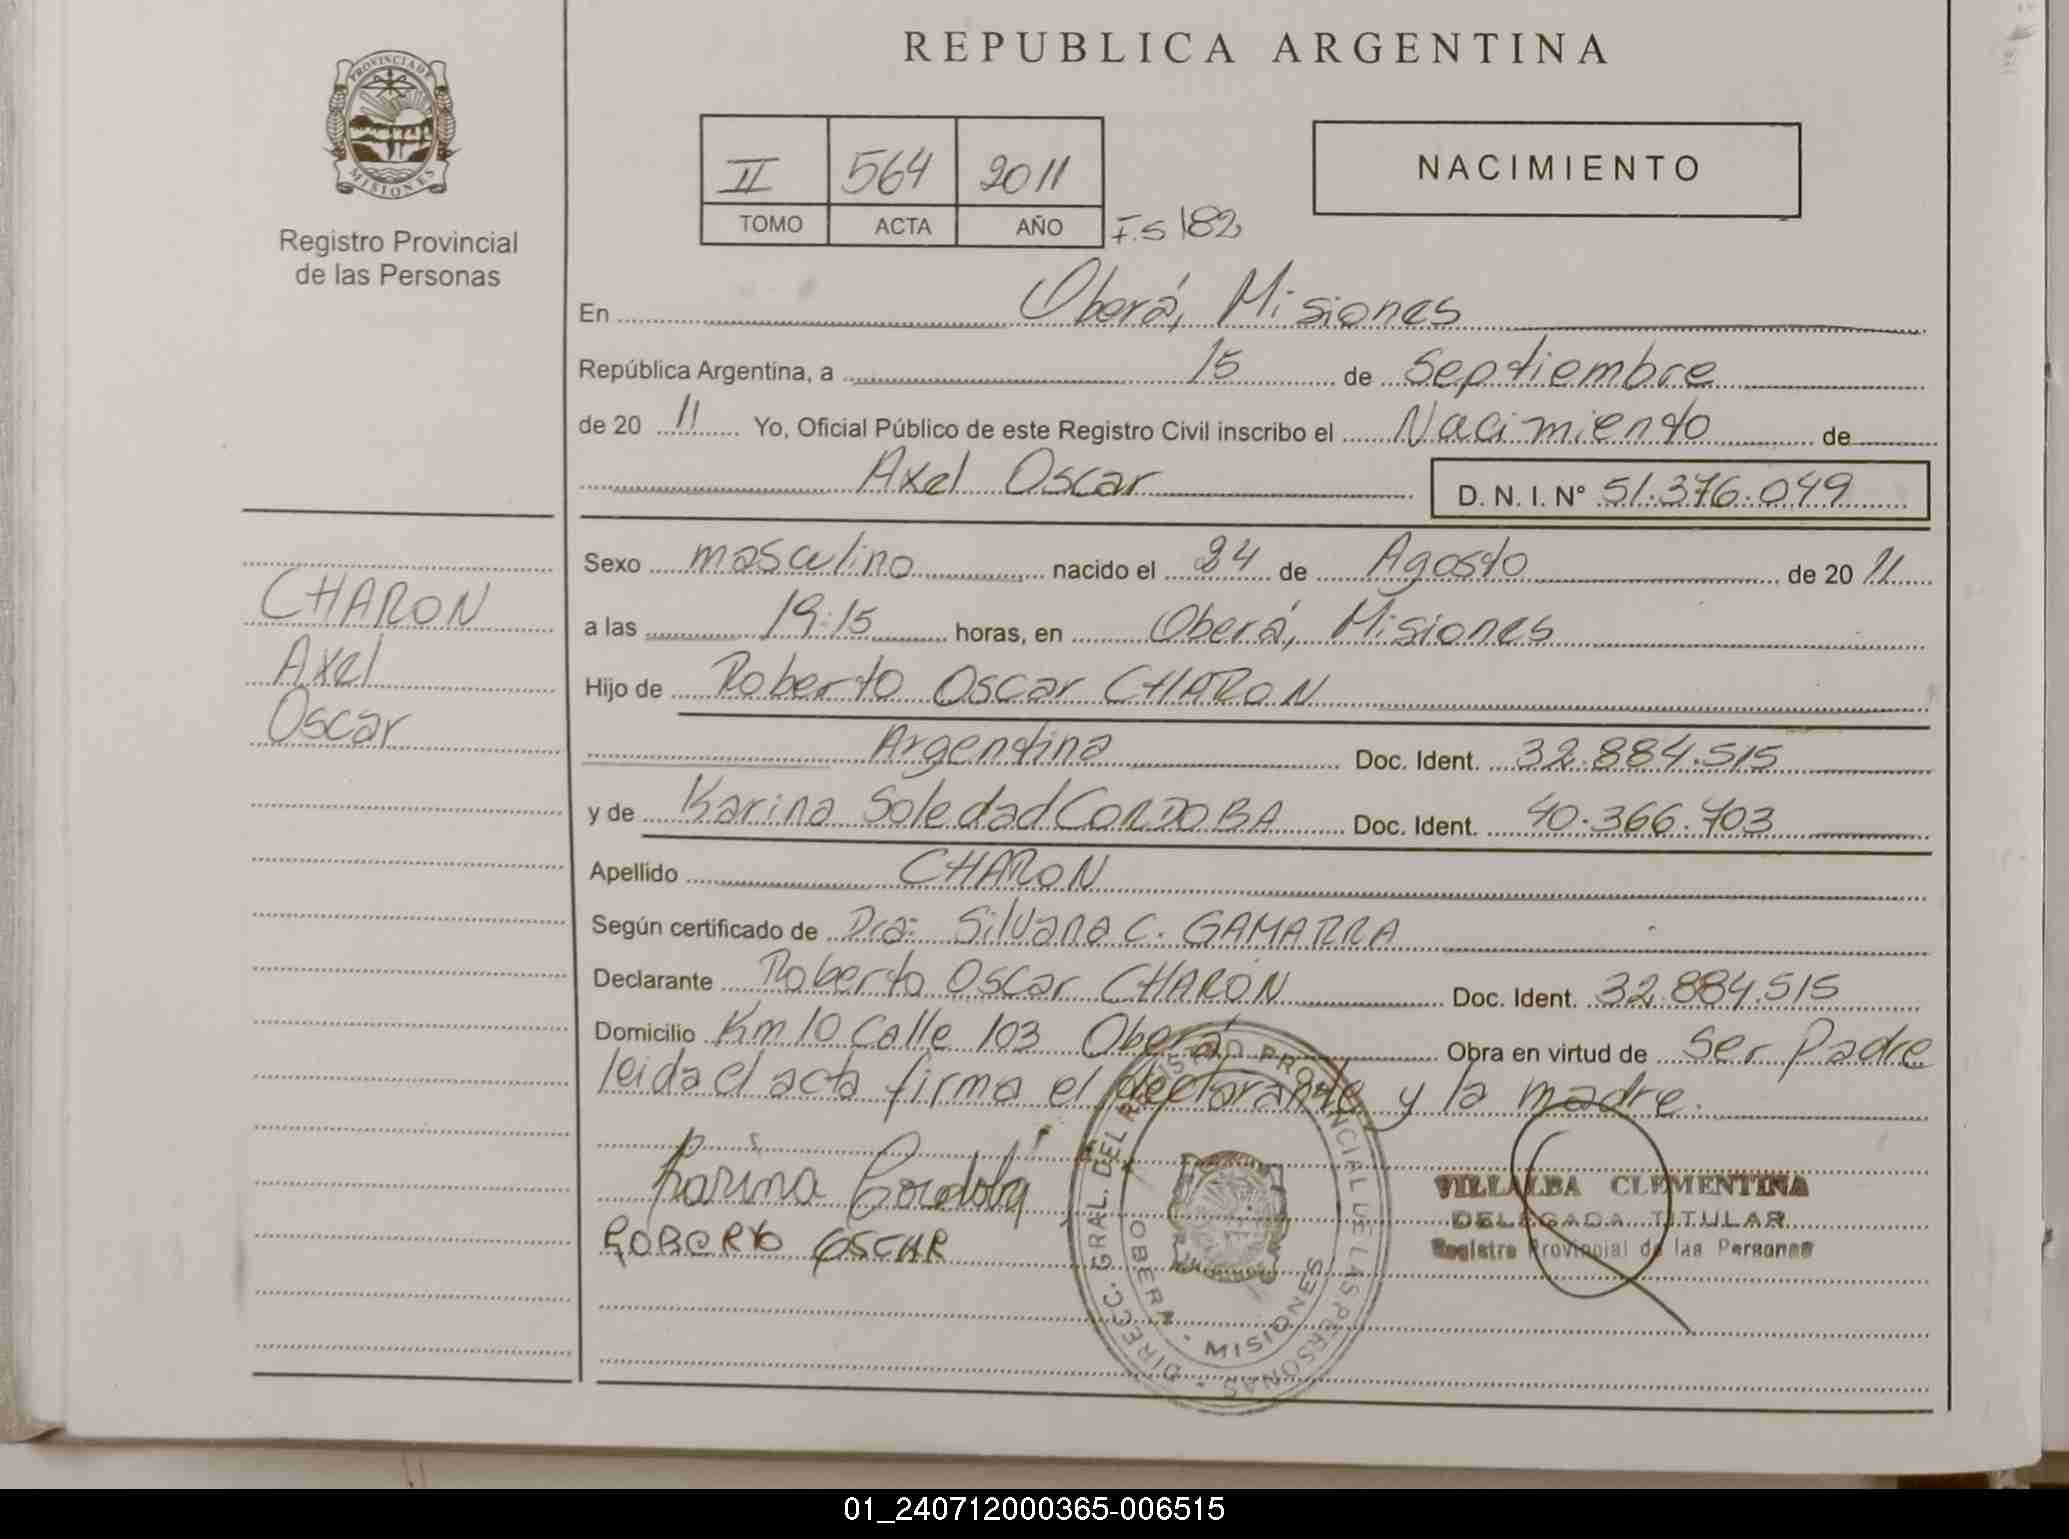 REPUBLICA ARGENTINA
PROVINCIA DE
MISIONES
Registro Provincial
de las Personas
II 564 2011
TOMO ACTA AÑO
F.S 182
NACIMIENTO
En Oberá, Misiones
República Argentina, a 15 de Septiembre
de 20 11 Yo, Oficial Público de este Registro Civil inscribo el Nacimiento de
Axel Oscar D. N. I. Nº 51.376.049
CHARON
Axel
Oscar
Sexo masculino nacido el 24 de Agosto de 20 11
a las 19:15 horas, en Oberá, Misiones
Hijo de Roberto Oscar CHARON
Argentina Doc. Ident. 32.884.515
y de Karina Soledad CORDOBA Doc. Ident. 40.366.703
Apellido CHARON
Según certificado de Dra: Silvana C. GAMARRA
Declarante Roberto Oscar CHARON Doc. Ident. 32.884.515
Domicilio Km 10 Calle 103 Oberá Obra en virtud de Ser Padre
leida el acta firma el declarante y la madre.
Karina Cordoba
ROBERTO OSCAR
DIRECC. GRAL. DEL REGISTRO PROVINCIAL DE LAS PERSONAS
OBERA - MISIONES
VILLALBA CLEMENTINA
DELEGADA TITULAR
Registro Provincial de las Personas
01_240712000365-006515